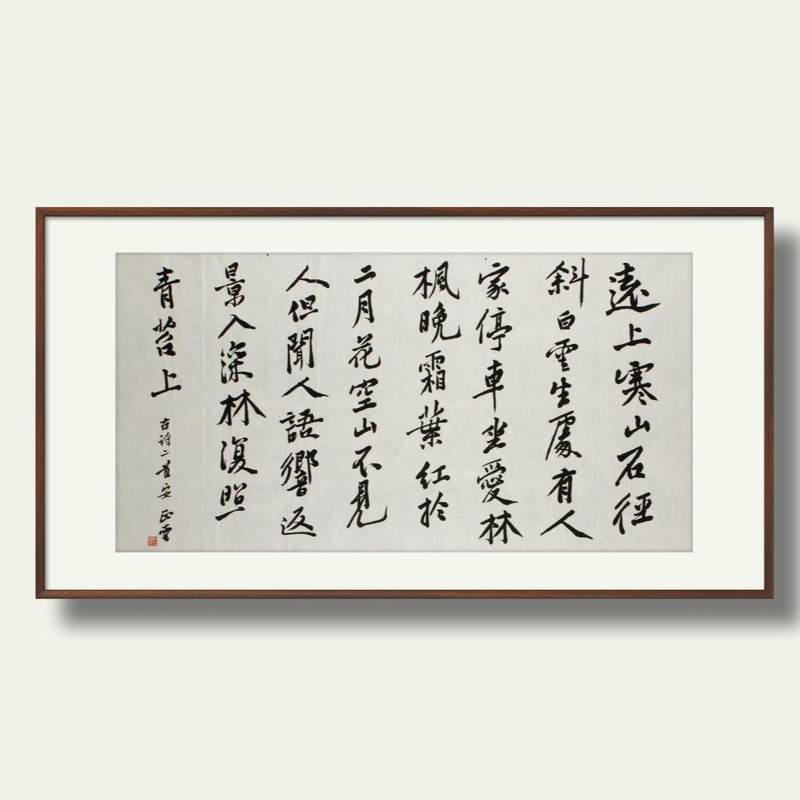 遠上寒山石徑
斜白雲生處有人
家停車坐愛林
楓晚霜葉红於
二月花空山不見
人但聞人語響返
景入深林復照
青苔上
古诗二首安正雲